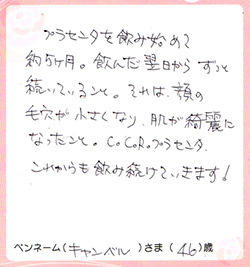 プラセンタを飲み始めて
約5ヶ月。飲んだ翌日から ずっと
続いていること。それは、顔の
毛穴が小さくなり、肌が綺麗に
なったこと。CoCoRoプラセンタ、
これからも飲み続けていきます!
ペンネーム(キャンベル)さま(46)歳